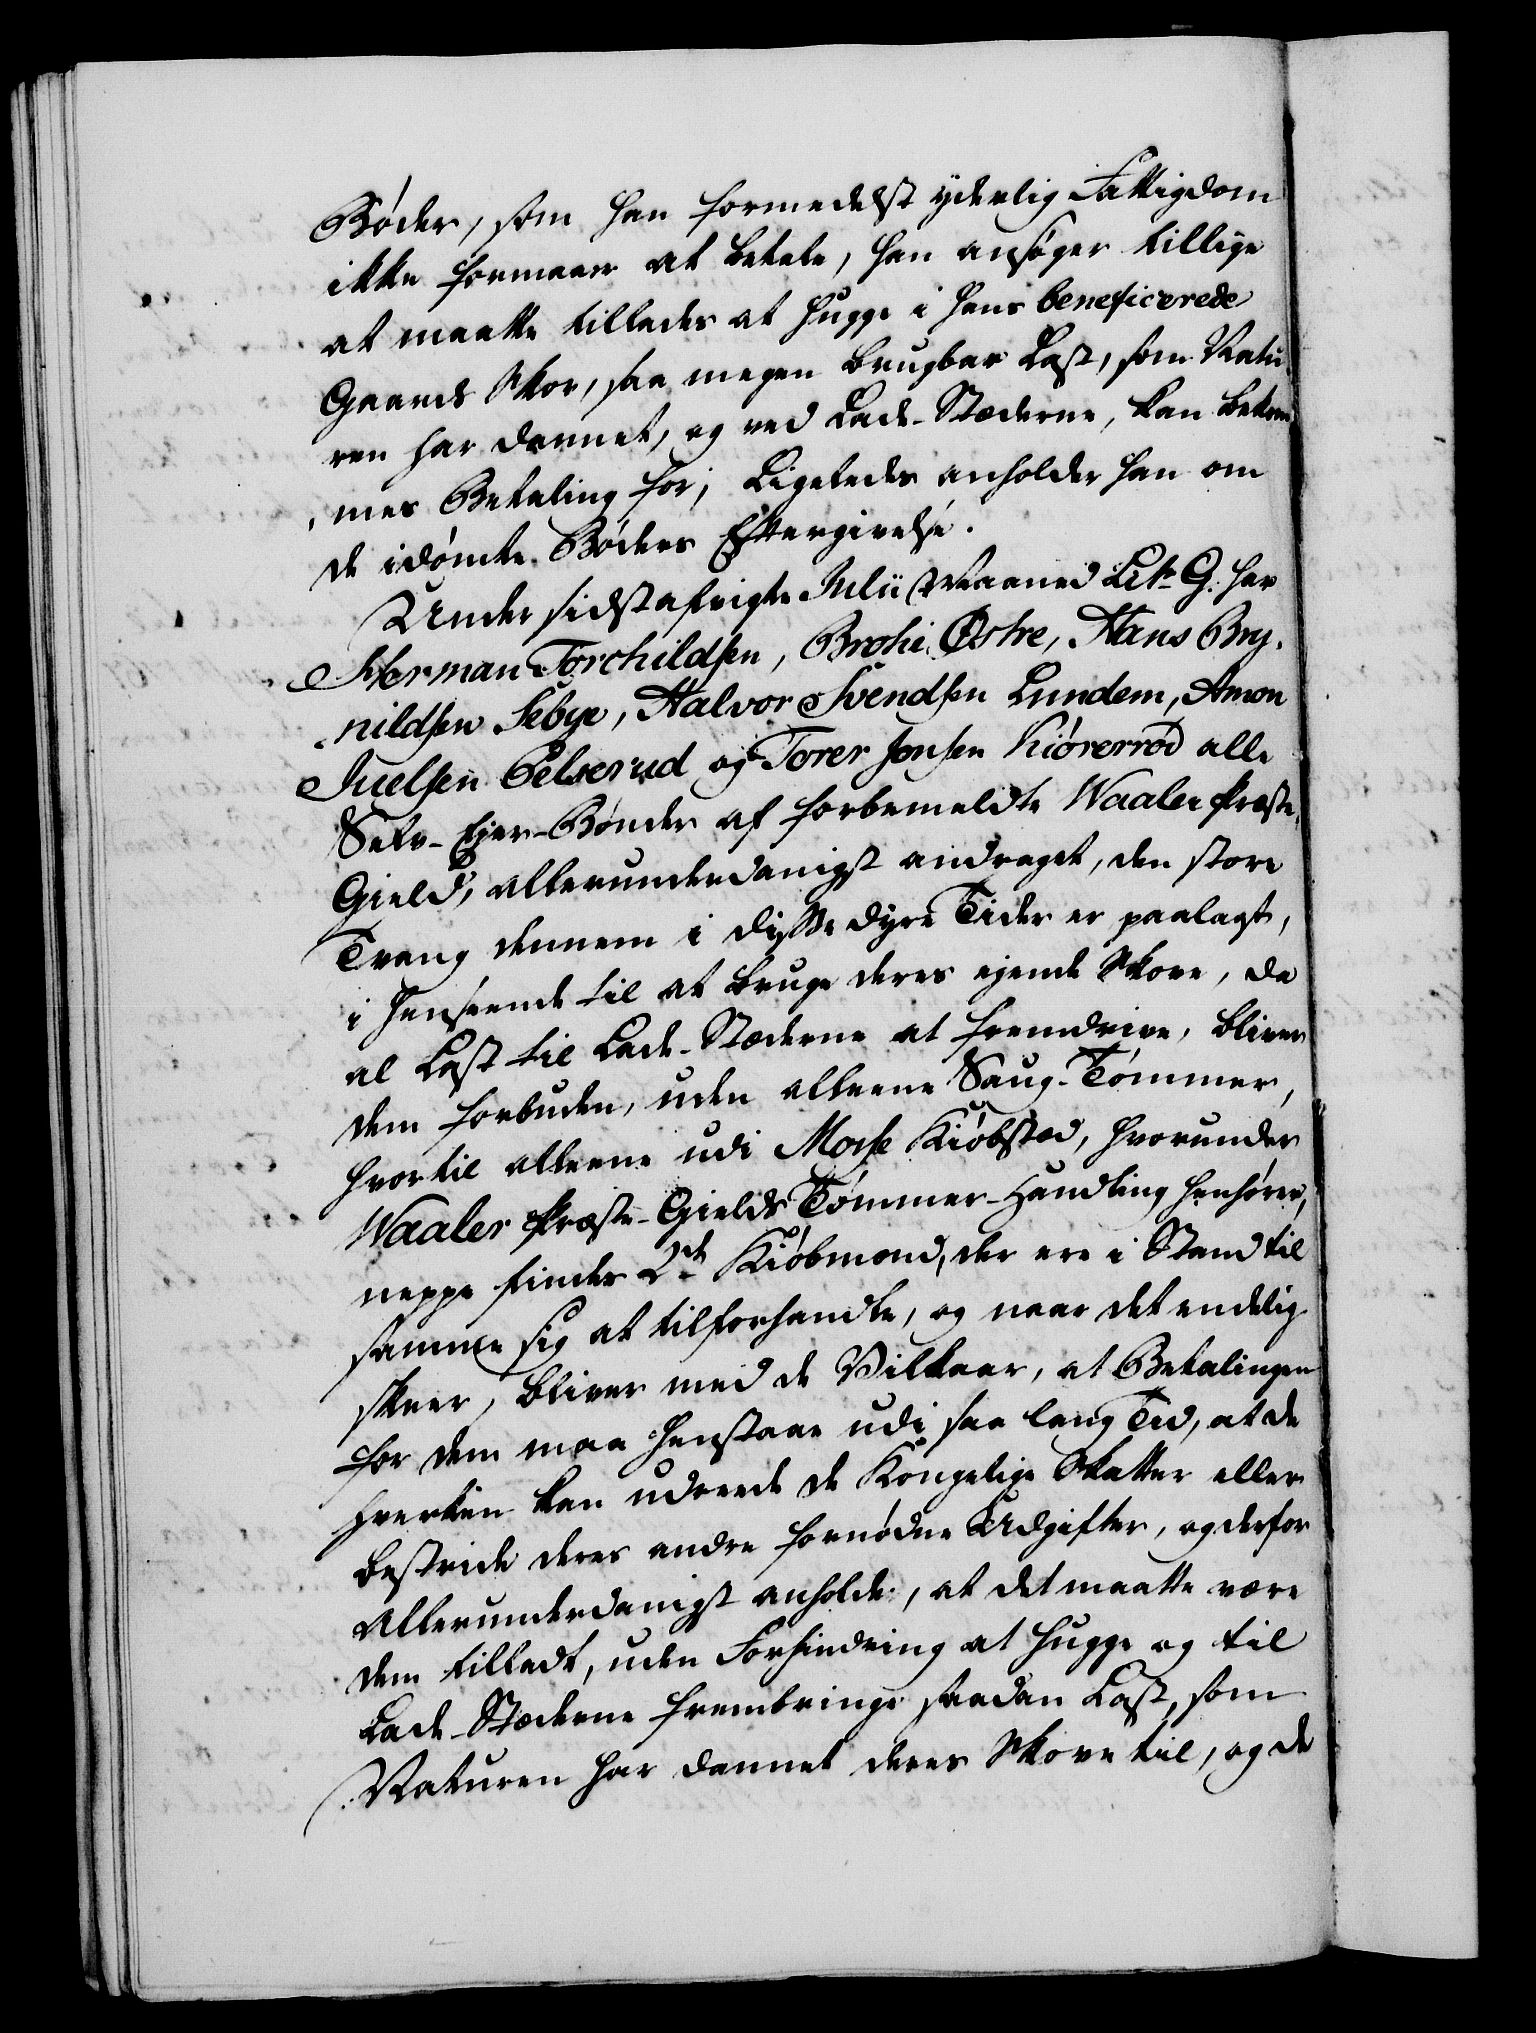 Bøder, som han formedelst yderlig Fattigdom
ikke formaaer at betale, han ansøger tillige
at maatte tillades at hugge i hans beneficerede
Gaards Skov, saa megen brugbar Last, som Natu-
ren har dannet, og ved Lade-Stæderne, kan bekom-
mes Betaling for; Ligeledes anholder han om
de idømte Bøders Eftergivelse.
Under sidstafvigte Julii Maaned Litr. G. har
Herman Torchildsen, Brohi Østre, Hans Bry-
nildsen Sebye, Halvor Svendsen Lundem, Amon
Juelsen Pelserud og Torer Jonsen Kiørerrød alle
Selv-Ejer-Bønder af forbemeldte Waaler Præste-
Gield, allerunderdanigst andraget, den store
Tvang dennem i disse dyre Tider er paalagt,
i Henseende til at bruge deres ejende Skove, da
al Last til Lade-Stæderne at fremdrive, bliver
dem forbuden, uden alleene Saug-Tømmer,
hvortil alleene udi Mosse Kiøbstæd, hvorunder
Waaler Præste-Gields Tømmer-Handling henhører,
neppe findes 2de Kiøbmænd, der ere i Stand til
samme sig at tilforhandle, og naar det endelig
skeer, bliver med de Vilkaar, at Betalingen
for dem maa henstaae udi saa lang Tid, at de
hverken kan udreede de Kongelige Skatter eller
bestride deres andre fornødne Udgifter, og derfor
Allerunderdanigst anholde, at det maatte være
dem tilladt, uden Forhindring at hugge og til
Lade-Stæderne frembringe saadan Last, som
Naturen har dannet deres Skove til, og de